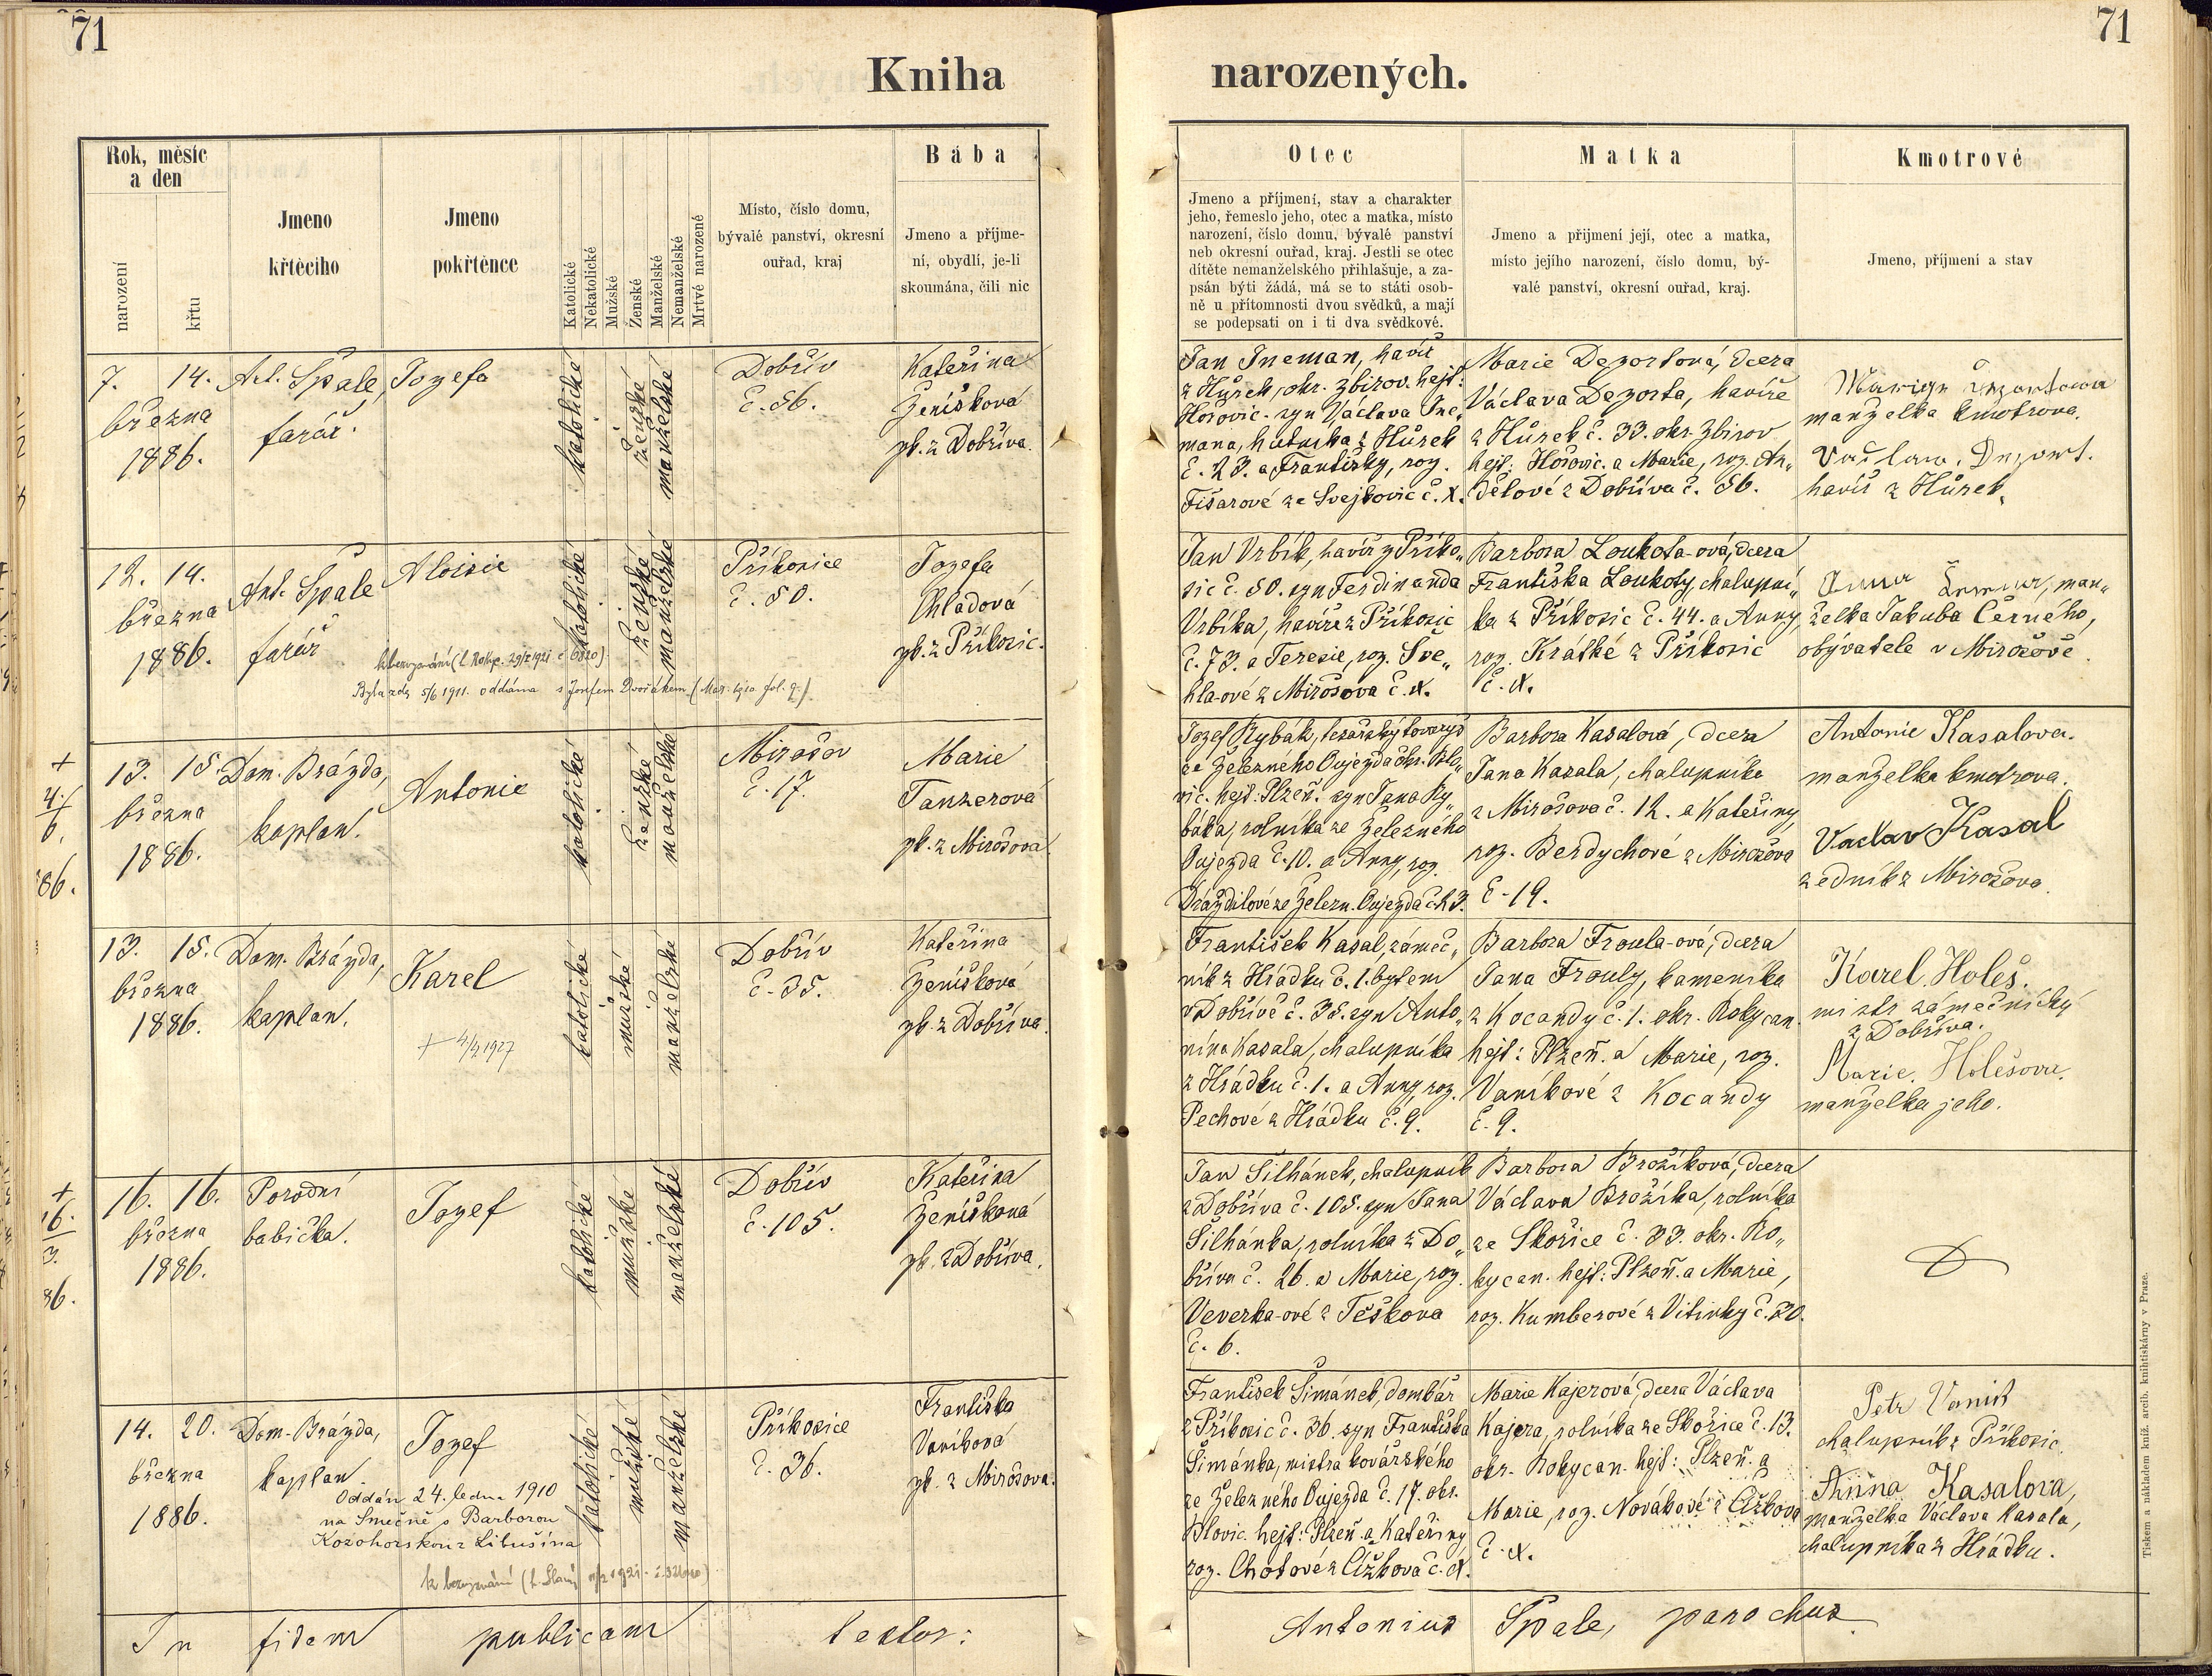 71
71
Kniha
narozených.
Rok, měsíc
a den
narození
křtu
Jmeno
křtěcího
Jmeno
pokřtěnce
Katolické
Nekatolické
Mužské
Ženské
Manželské
Nemanželské
Mrtvé narozené
Místo, číslo domu,
bývalé panství, okresní
ouřad, kraj
Bába
Jmeno a příjme-
ní, obydlí, je-li
skoumána, čili nic
Otec
Jmeno a příjmení, stav a charakter
jeho, řemeslo jeho, otec a matka, místo
narození, číslo domu, bývalé panství
neb okresní ouřad, kraj. Jestli se otec
dítěte nemanželského přihlašuje, a za-
psán býti žádá, má se to státi osob-
ně u přítomnosti dvou svědků, a mají
se podepsati on i ti dva svědkové.
Matka
Jmeno a přijmení její, otec a matka,
místo jejího narození, číslo domu, bý-
valé panství, okresní ouřad, kraj.
Kmotrové
Jmeno, příjmení a stav
7. 14.
března
1886.
Ant. Špale,
farář.
Jozefa
katolické
ženské
manželské
Dobřív
č. 56.
Kateřina
Ženíšková
zk. z Dobříva.
Jan Ineman, havíř
z Hůrek, okr. Zbirov. hejt:
Hořovic. syn Václava Ine-
mana, hutníka z Hůrek
č. 23. a Františky, roz.
Fišarové ze Svejkovic č. x.
Marie Dezortová, dcera
Václava Dezorta, havíře
z Hůrek č. 33. okr. Zbirov
hejt: Hořovic. a Marie, roz. An„
dělové z Dobříva č. 56.
manželka kmotrova.
Václav Dezort.
havíř z Hůrek.
12. 14.
března
1886.
Ant. Špale
farář
Aloisie
katolické
ženské
manželské
Příkosice
č. 50.
Jozefa
Chladová
zk. z Příkosic.
k bezvyznání (
Byla zde 5/6 1911. oddána s Josefem Dvořákem (
Jan Vrbík, havíř z Příko„
sic č. 50. syn Ferdinanda
Vrbíka, havíře z Příkosic
č. 73. a Terezie, roz. Šve„
hla-ové z Mirošova č. x.
Barbora Loukota-ová, dcera
Františka Loukoty, chalupní„
ka z Příkosic č. 44. a Anny,
roz. Krátké z Příkosic
č. x.
Anna man„
želka Jakuba Černého,
obývatele v Mirošově.
+
4.
6.
86.
13. 15.
března
1886.
Dom. Brázda,
kaplan.
Antonie
katolické
ženské
manželské
Mirošov
č. 17.
Marie
Tanzerová
zk. z Mirošova
Jozef Rybák, tesařský tovaryš
ze Železného Oujezda okr. Blo-
vic. hejt: Plzeň. syn Jana Ry-
báka, rolníka ze Železného
Oujezda č. 10. a Anny, roz.
Drázdilové ze Železn. Oujezda č. 23.
Barbora Kasalová, dcera
Jana Kasala, chalupníka
z Mirošova č. 12. a Kateřiny,
roz. Berdychové z Mirošova
č. 19.
Antonie Kasalova.
manželka kmotrova.
Vaclav Kasal
zedník z Mirošova.
13. 15.
března
1886.
Dom. Brázda,
kaplan.
Karel
+ 4/2 1927
katolické
mužské
manželské
Dobřív
č. 35.
Kateřina
Ženíšková
zk. z Dobříva.
František Kasal, zámeč„
ník z Hrádku č. 1. bytem
v Dobřívě č. 35. syn Anto„
nína Kasala, chalupníka
z Hrádku č. 1. a Anny, roz.
Pechové z Hrádku č. 9.
Barbora Froula-ová, dcera
Jana Frouly, kameníka
z Kocandy č. 1. okr. Rokycan.
hejt: Plzeň. a Marie, roz.
Vaníkové z Kocandy
č. 9.
Karel Holeš.
mistr zámečnický
z Dobříva.
Marie Holešova.
manželka jeho.
+
16.
3.
86.
16. 16.
března
1886.
Porodní
babička.
Jozef
katolické
mužské
manželské
Dobřív
č. 105.
Kateřina
Ženíšková
zk. z Dobříva.
Jan Šilhánek, chalupník
z Dobříva č. 105. syn Jana
Šilhánka, rolníka z Do„
bříva č. 26. a Marie, roz.
Veverka-ové z Těškova
č. 6.
Barbora Brožíková, dcera
Václava Brožíka, rolníka
ze Skořice č. 33. okr. Ro„
kycan. hejt: Plzeň. a Marie,
roz. Kumberové z Vitinky č. 20.
14. 20.
března
1886.
Dom. Brázda,
kaplan.
Jozef
Oddán 24. ledna 1910
na Smečně s Barborou
Kozohorskou z Libušína
k bezvyznání
katolické
mužské
manželské
Příkosice
č. 36.
Františka
Vaníková
zk. z Mirošova.
František Šimánek, dombář
z Příkosic č. 36. syn Františka
Šimánka, mistra kovářského
ze Železného Oujezda č. 17. okr.
Blovic. hejt: Plzeň a Kateřiny
roz. Chotové z Čížkova č. x.
Marie Kajerová, dcera Václava
Kajera, rolníka ze Skořice č. 13.
okr. Rokycan. hejt: Plzeň. a
Marie, roz. Novákové z Čížkova
č. x.
Petr Vanik
chalupník z Příkosic.
Anna Kasalova,
manželka Václava Kasala,
chalupníka z Hrádku.
In fidem publicam testor:
Antonius Špale, parochus
Tiskem a nákladem kníž. arcib. knihtiskárny v Praze.